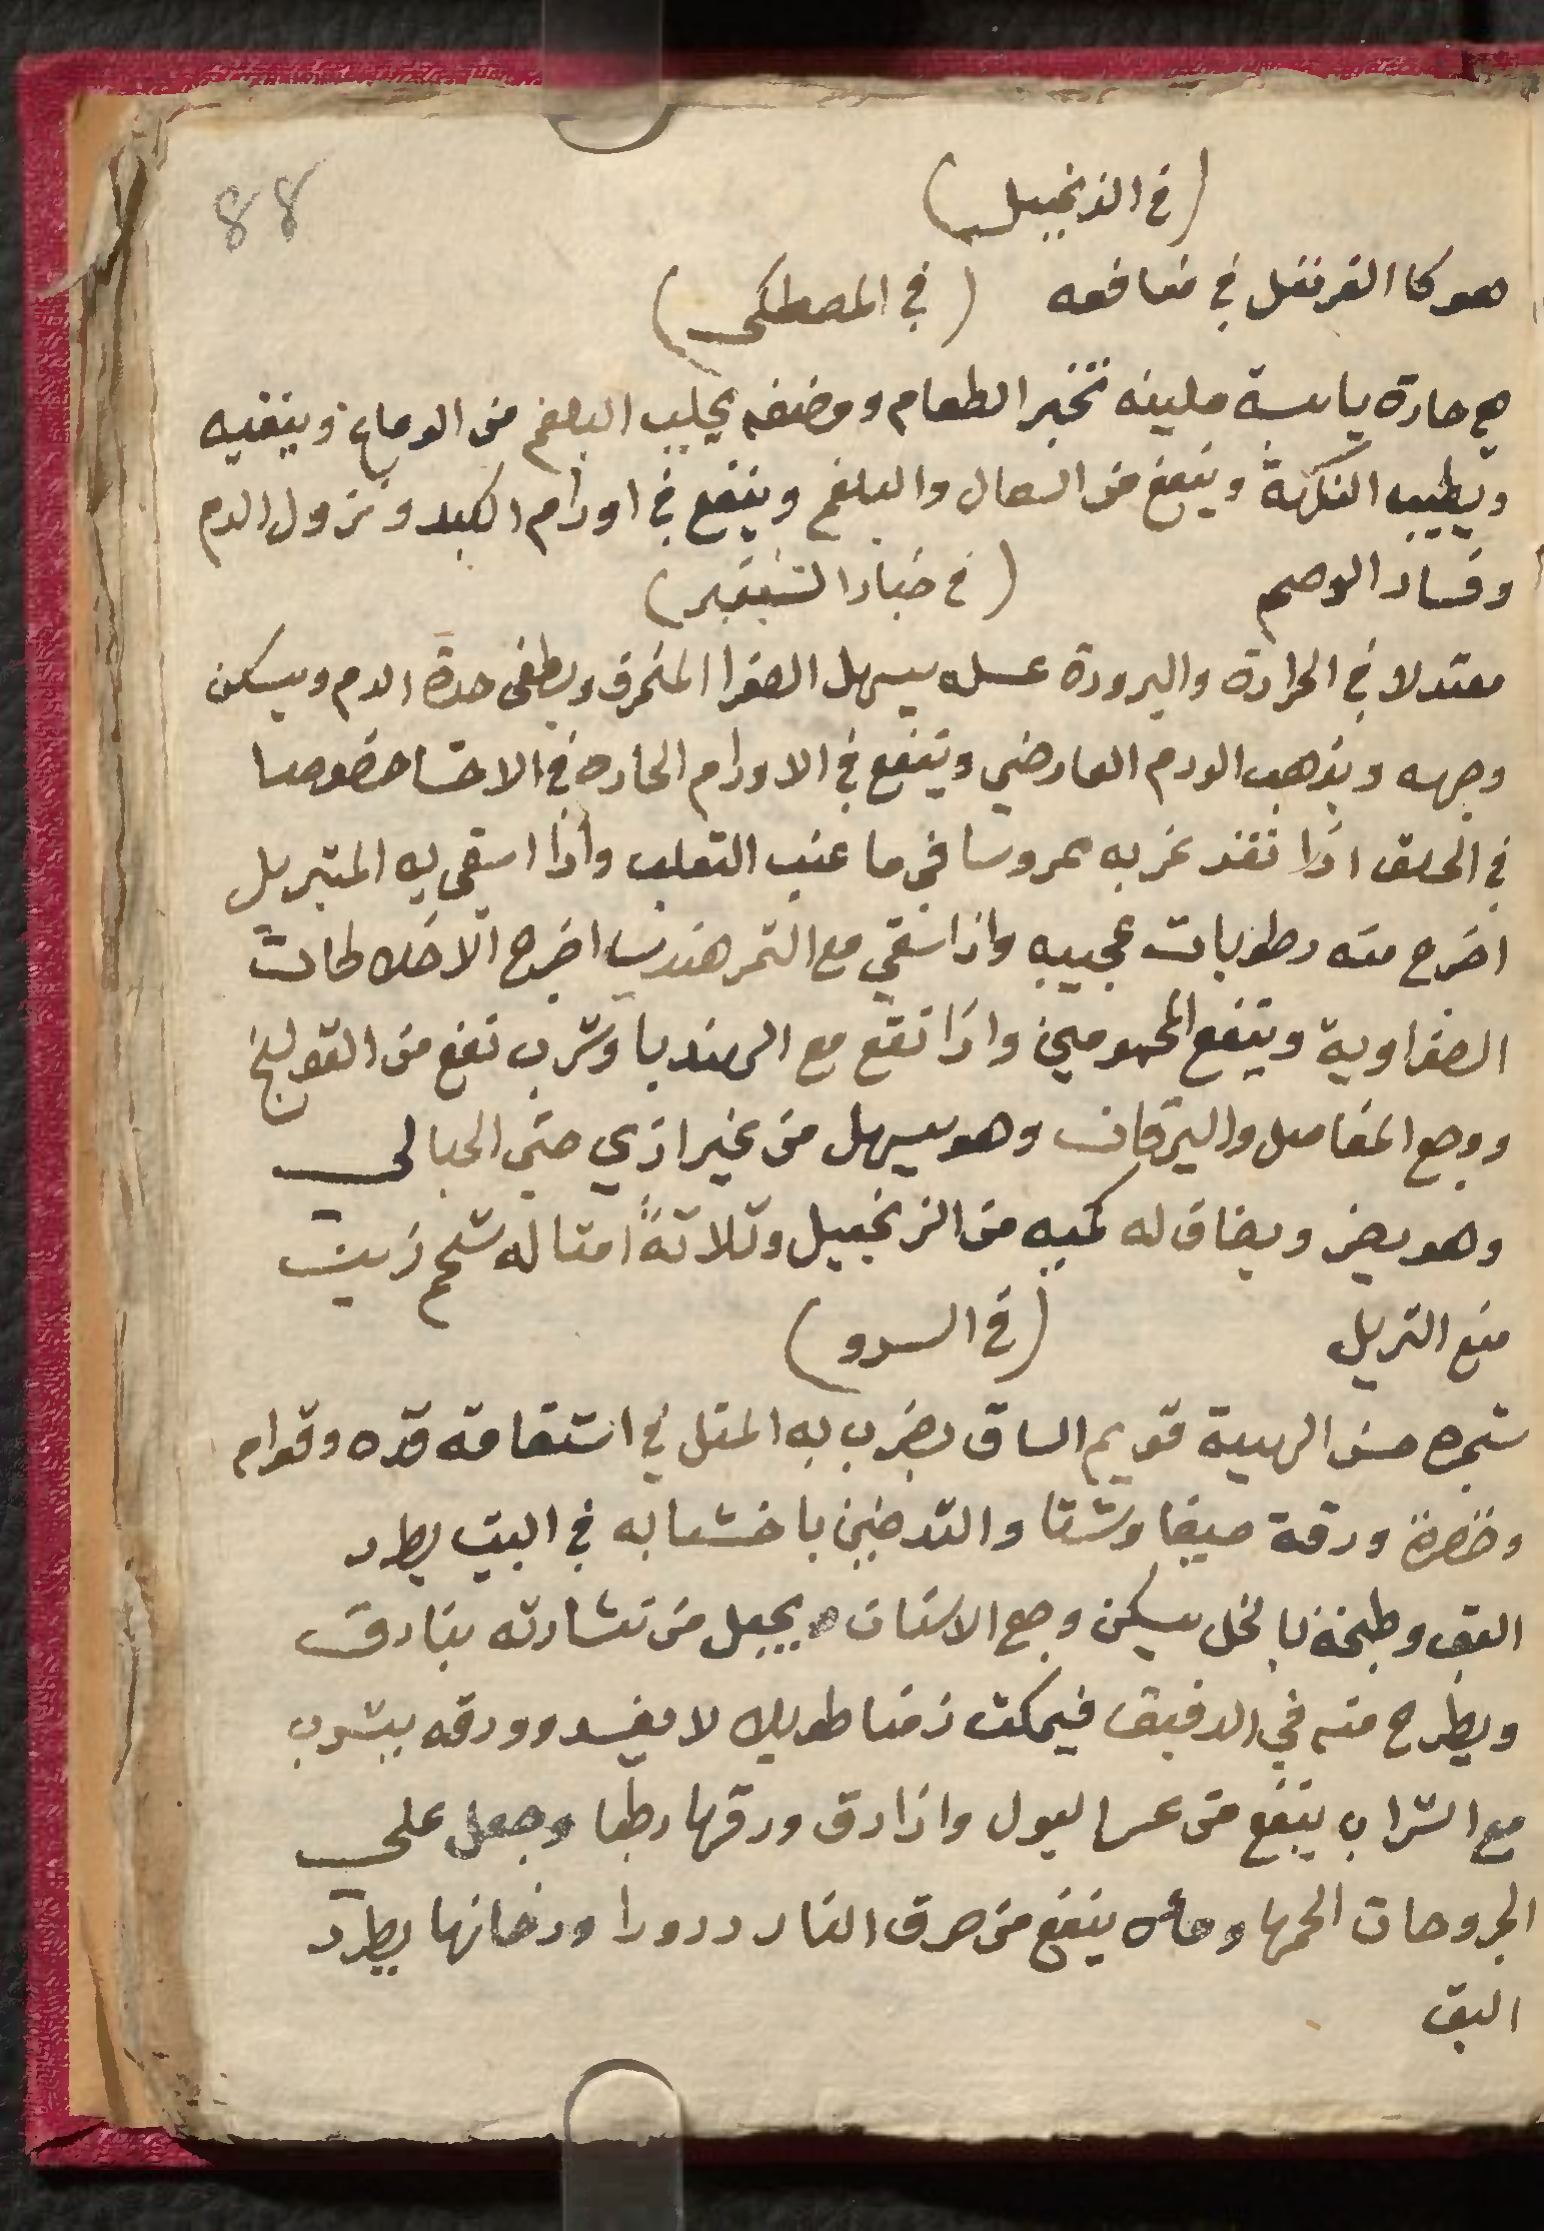 88
(في الزنجبيل)
هو كا القرنفل في منافعه (في المصطكى)
هي حارة يابسة ملينه تخبر الطعام ومضغه يجلب البلغم من الدماغ وينقيه
ويطيب النكهة وينفع من السعال والبلغم وينفع في اورام الكبد ونزول الدم
وفساد الوصم (في خيار الشنبر)
معتدلا في الحرارة والبرودة عسله يسهل الصفرا المنحرف ويطفى حدة الدم ويسكن
وجهه ويذهب الورم العارضي وينفع في الاورام الحاره في الاحشا خصوصا
في الحلق اذا تغرغر به ممروسا في ما عنب التعلب واذا استقى به المتبربل
اخرج منه رطوبات عجيبه واذا سقي مع التمر هنديا اخرج الاخلاطات
الصفراوية وينفع المحمومين واذا نقع مع الهندبا وشرب نفع من القولنج
ووجع المفاصل واليرقان وهو يسهل من غير اذي حتى الحبالى
وهو يضر ويضاف له كميه من الزنجبيل وثلاتة امتاله شحم زبيب
منع التربل (في السرو)
شجره حسن الهيية قويم الساق يضرب به المتل في استقامة قده وقوام
وخضرة ورقة صيفا وشتا والتدخين باخشابه في البيت يطرد
البق وطبخه بالخل يسكن وجع الاسنان ويجعل من نشارته بنادق
ويطرح منه في الدقيق فيمكت زمنا طويلا لا يفسد وورقه بيشرب
مع الشراب ينفع من عسر البول واذا دق ورقها رطبا وجعل علي
الجروحات الحمها وماه ينفع من حرق النار درورا ودخانها يطرد
البق